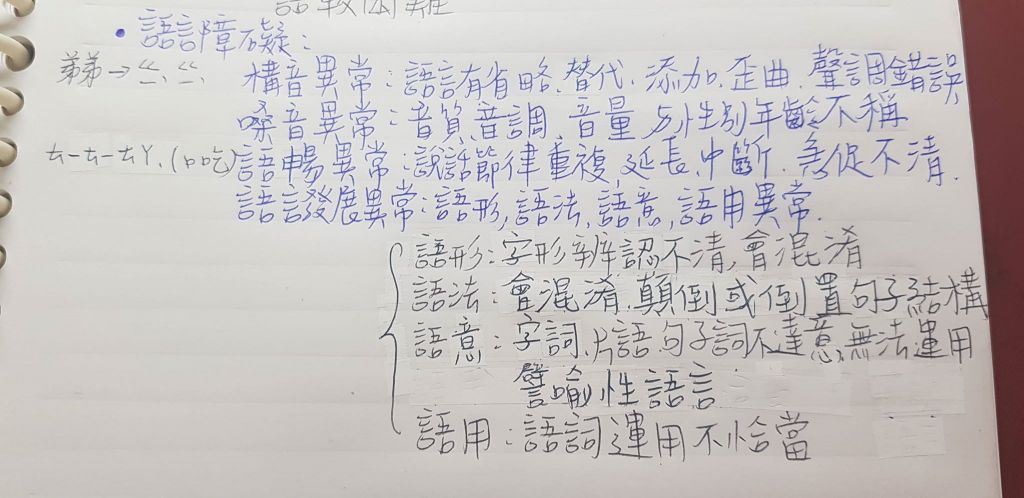 • 語言障礙:
弟弟→ㄠㄠˋ 構音異常:語言有省略、替代、添加、歪曲、聲調錯誤
嗓音異常:音質、音調、音量 与性別年齡不稱
ㄊㄧㄊㄧㄊㄚ、(口吃)語暢異常:說話節律重複、延長、中斷、急促不清.
語言發展異常:語形,語法,語意,語用異常.
語形:字形辨認不清,會混淆
語法:會混淆、顛倒或倒置句子結構
語意:字詞、片語、句子詞不達意,無法運用
譬喻性語言
語用:語詞運用不恰當